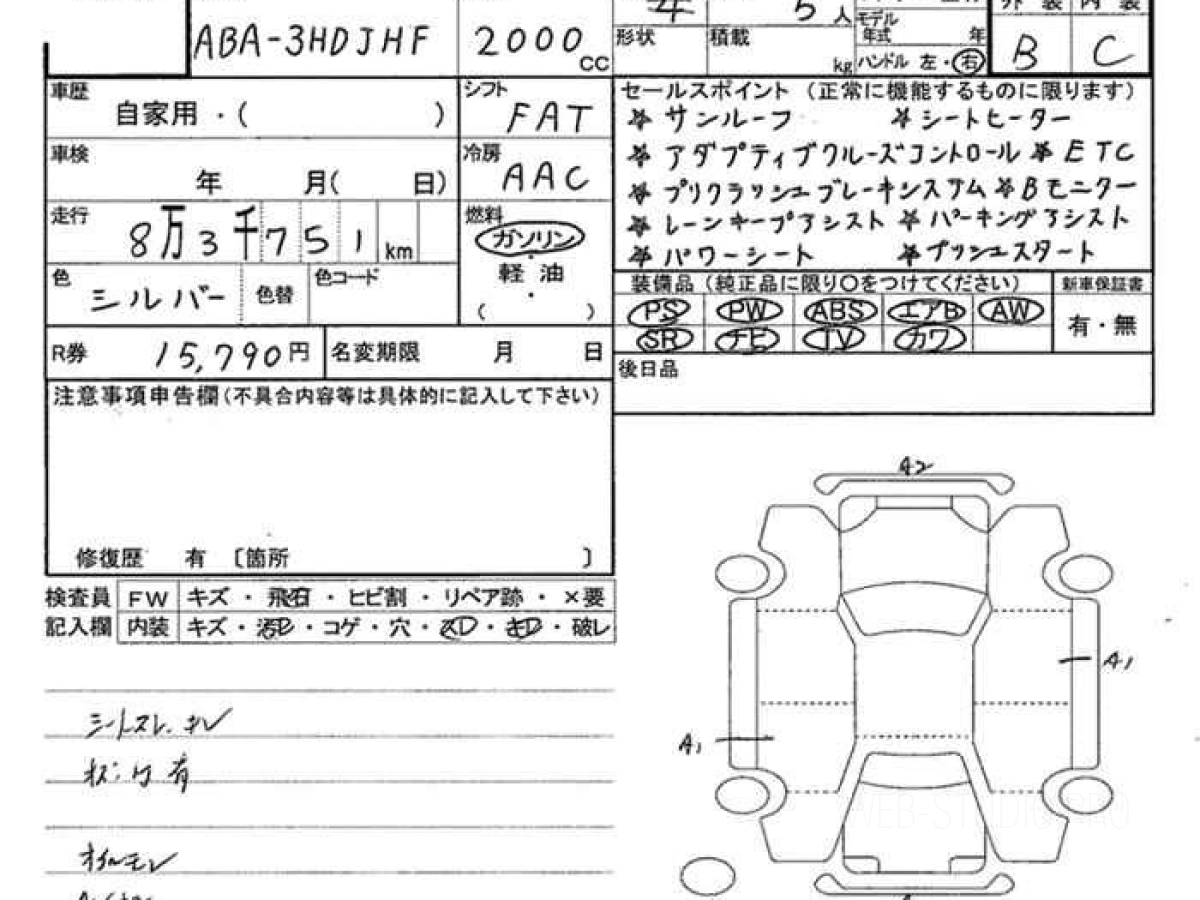 5人
形状 積載 kg
モデル年式 年
ハンドル 左・右
外装 内装
B C
ABA-3HDJHF 2000cc
車歴 自家用・( )
シフト FAT
車検 年 月( 日)
冷房 AAC
走行 8万3千751km
燃料 ガソリン・軽油・( )
色 シルバー 色替 色コード
R券 15,790円 名変期限 月 日
注意事項申告欄(不具合内容等は具体的に記入して下さい)
修復歴 有 〔箇所 〕
セールスポイント (正常に機能するものに限ります)
☆サンルーフ ☆シートヒーター
☆アダプティブクルーズコントロール ☆ETC
☆プリクラッシュブレーキシステム ☆Bモニター
☆レーンキープアシスト ☆パーキングアシスト
☆パワーシート ☆プッシュスタート
装備品 (純正品に限り○をつけてください) 新車保証書
PS PW ABS エアB AW 有・無
SR ナビ TV カワ
後日品
検査員 FW キズ・飛石・ヒビ割・リペア跡・×要
記入欄 内装 キズ・汚レ・コゲ・穴・スレ・キレ・破レ
シートスレ、キレ
有
オイルモレ
A2
A1
A1